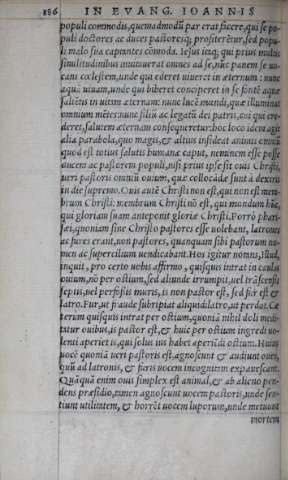 186 IN EVANG. IOANNIS
populi commodis, quemadmodũ par erat facere, qui se po-
puli doctores ac duces pastoresq; profiterẽtur, sed popu-
li malo sua captantes cõmoda. Iesus itaq; qui prius multis
similitudinibus inuitauerat omnes ad se, nũc panem se uo-
cans cœlestem, unde qui ederet uiueret in æternum: nunc
aquã uiuam, unde qui biberet conciperet in se fontẽ aquæ
salientis in uitam æternam: nunc lucẽ mundi, quæ illuminat
omnium mẽtes: nunc filiũ ac legatũ dei patris, cui qui cre-
deret, salutem æternam consequeretur: hoc loco idem agit
alia parabola, quo magis, & altius insideat animis omniũ
quod est totius salutis humanæ caput, neminem esse posse
ducem ac pastorem populi, nisi prius ipse sit ouis Christi,
ueri pastoris omniũ ouium, quæ collocãdæ sunt à dextris
in die supremo. Ouis autẽ Christi non est, qui non est mem-
brum Christi: membrum Christi nõ est, qui mundum hũc,
qui gloriam suam anteponit gloriæ Christi. Porrò phari-
sæi, quoniam sine Christo pastores esse uolebant, latrones
ac fures erant, non pastores, quanquam sibi pastorum no-
men ac supercilium uendicabant. Hos igitur notans, Illud,
inquit, pro certo uobis affirmo, quisquis intrat in caulas
ouium, nõ per ostium, sed aliunde irrumpit, uel trãscensis
sepius, uel perfossis muris, is non pastor est, sed fur est &
latro. Fur, ut fraude subripiat aliquid: latro, ut perdat. Cæ
terum quisquis intrat per ostium, quoniã nihil doli medi-
tatur ouibus, is pastor est, & huic per ostium ingredi uo-
lenti aperiet is, qui solus ius habet aperiẽdi ostium. Huius
uocẽ quoniã ueri pastoris est, agnoscunt & audiunt oues,
quũ ad latronis, & furis uocem incognitam expauescant.
Quãquã enim ouis simplex est animal, & ab alieno pen-
dens præsidio, tamen agnoscunt uocem pastoris, unde sen-
tiunt utilitatem, & horrẽt uocem luporum, unde metuunt
mortem